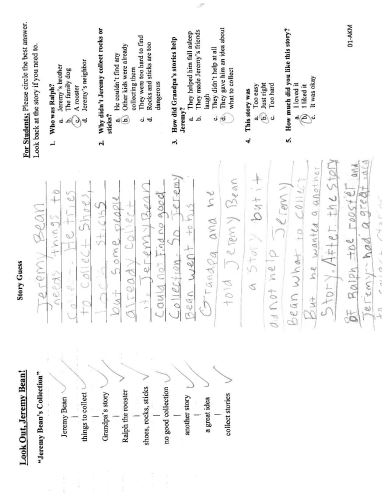 Look Out, Jeremy Bean!
"Jeremy Bean's Collection"
Jeremy Bean
things to collect
Grandpa's story
Ralph the rooster
shoes, rocks, sticks
no good collection
another story
a great idea
collect stories
Story Guess
Jeremy Bean
needs things to
He tries
to collect Shoes,
but some people
already collect
Jeremy Bean
Could not find no good
Collection So Jeremy
Bean went to his
Grandpa and he
told Jeremy Bean
a story but it
did not help Jeremy
Bean what to collect
But he wanted a another
Story. After the story
of Ralph the rooster and
Jeremy had a great
For Students: Please circle the best answer.
Look back at the story if you need to.
1. Who was Ralph?
a. Jeremy's brother
b. The family dog
c. A rooster
d. Jeremy's neighbor
2. Why didn't Jeremy collect rocks or
sticks?
a. He couldn't find any
b. Other kids were already
collecting them
c. They were too hard to find
d. Rocks and sticks are too
dangerous
3. How did Grandpa's stories help
Jeremy?
a. They helped him fall asleep
b. They made Jeremy's friends
laugh
c. They didn't help at all
d. They gave him an idea about
what to collect
4. This story was
a. Too easy
b. Just right
c. Too hard
5. How much did you like this story?
a. I loved it
b. I liked it
c. It was okay